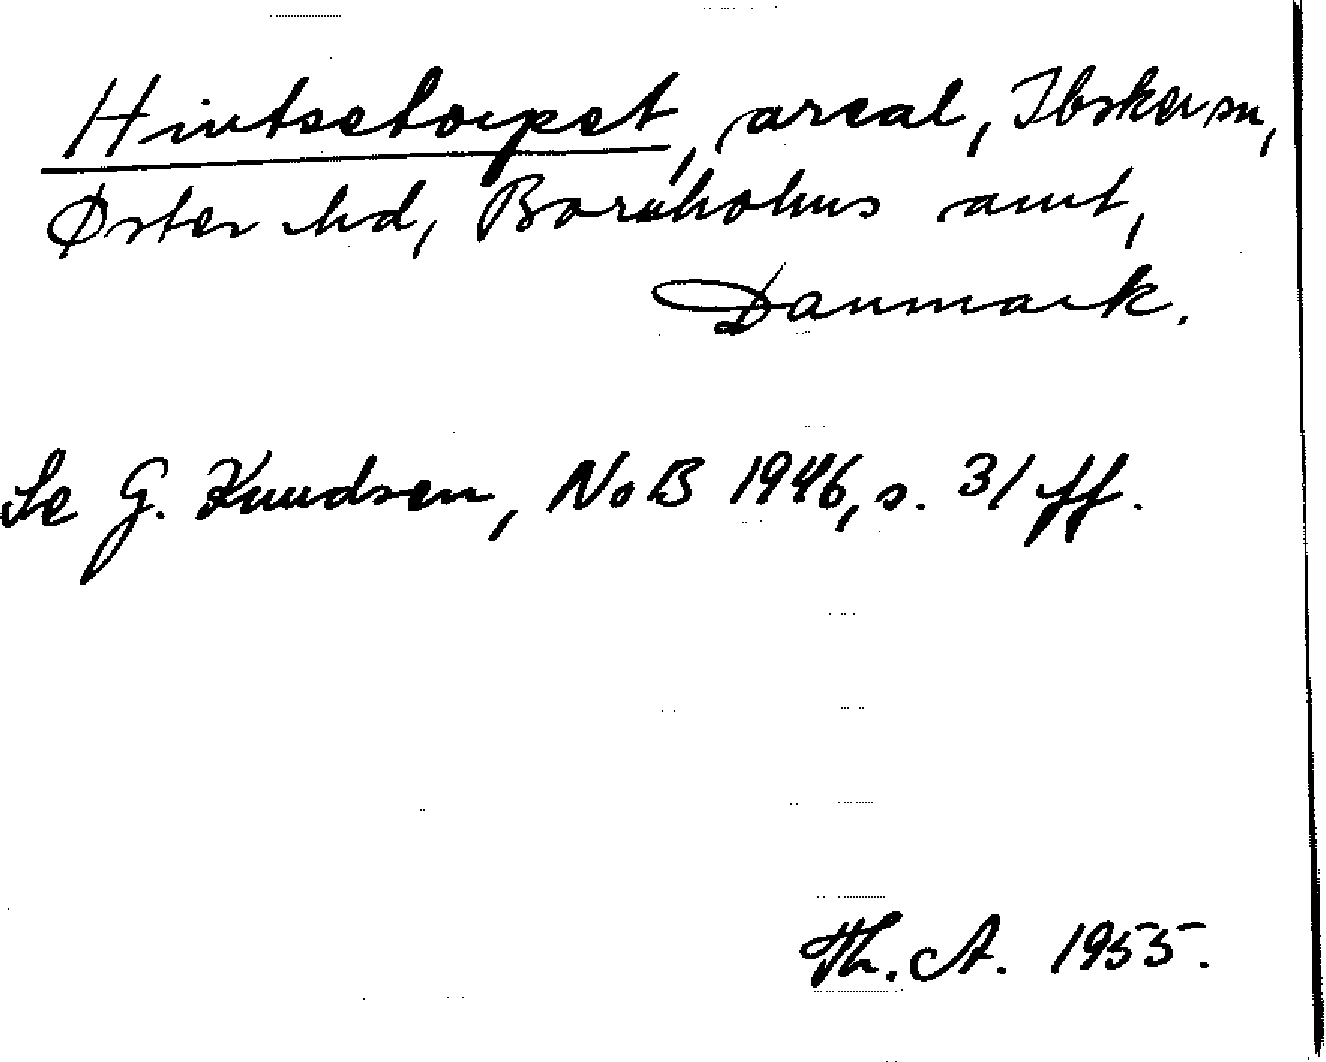 Hintsetorpet, areal, Ibsker sn,
Øster hd, Bornholms amt,
Danmark.
Se G. Knudsen, NoB 1946, s. 31 ff.
Th. A. 1955.